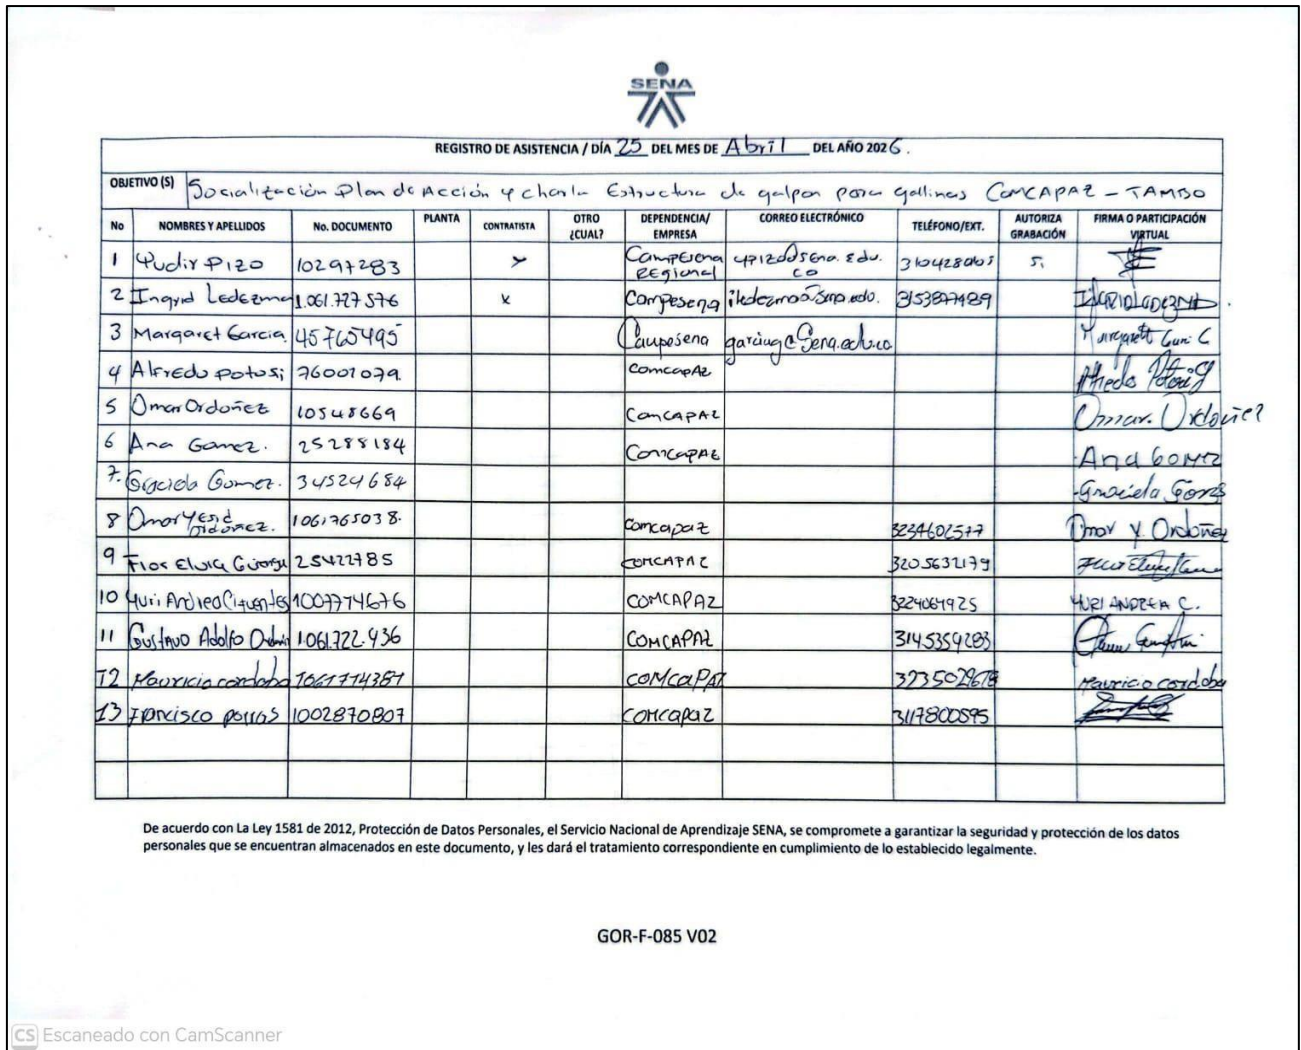 SENA
REGISTRO DE ASISTENCIA / DÍA 25 DEL MES DE Abril DEL AÑO 2026.
OBJETIVO (S) Socialización Plan de Acción y charla Estructura de galpon para gallinas COMCAPAZ - TAMBO
No NOMBRES Y APELLIDOS No. DOCUMENTO PLANTA CONTRATISTA OTRO ¿CUAL? DEPENDENCIA/ EMPRESA CORREO ELECTRÓNICO TELÉFONO/EXT. AUTORIZA GRABACIÓN FIRMA O PARTICIPACIÓN VIRTUAL
1 Yudir Pizo 10297283 x Campesena Regional ypizo@sena.edu.co Si
2 Ingrid Ledezma 1.061.727576 x Campesena iledezma@sena.edu. 3153897489 INGRID LEDEZMA
3 Margaret Garcia 45765495 Campesena garciag@Sena.edu.co
4 Alfredo Potosi 76001079 ComcapAz Alfredo Potosi
5 Omar Ordoñez 10548669 ComCAPAZ Omar. Ordoñez
6 Ana Gomez. 25288184 ComcapAz Ana GOMEZ
7. Graciela Gomez. 34524684 Graciela Gomez
8 Omar Yesid Ordoñez. 1061765038. Comcapaz 3234602577 Omar Y Ordoñez
9 Flor Elvia 25422785 COMCAPAZ 3205632179
10 Yuri Andrea Cifuentes 1007774676 COMCAPAZ 3224064925 YURI ANDREA C.
11 Gustavo Adolfo 1.061.722.936 COMCAPAZ 3145354283
12 Mauricio cordoba 1061714387 COMCaPAZ 3235029678 Mauricio cordoba
13 Francisco porras 1002870807 COMCapaz 3117800595
De acuerdo con La Ley 1581 de 2012, Protección de Datos Personales, el Servicio Nacional de Aprendizaje SENA, se compromete a garantizar la seguridad y protección de los datos
personales que se encuentran almacenados en este documento, y les dará el tratamiento correspondiente en cumplimiento de lo establecido legalmente.
GOR-F-085 V02
CS Escaneado con CamScanner